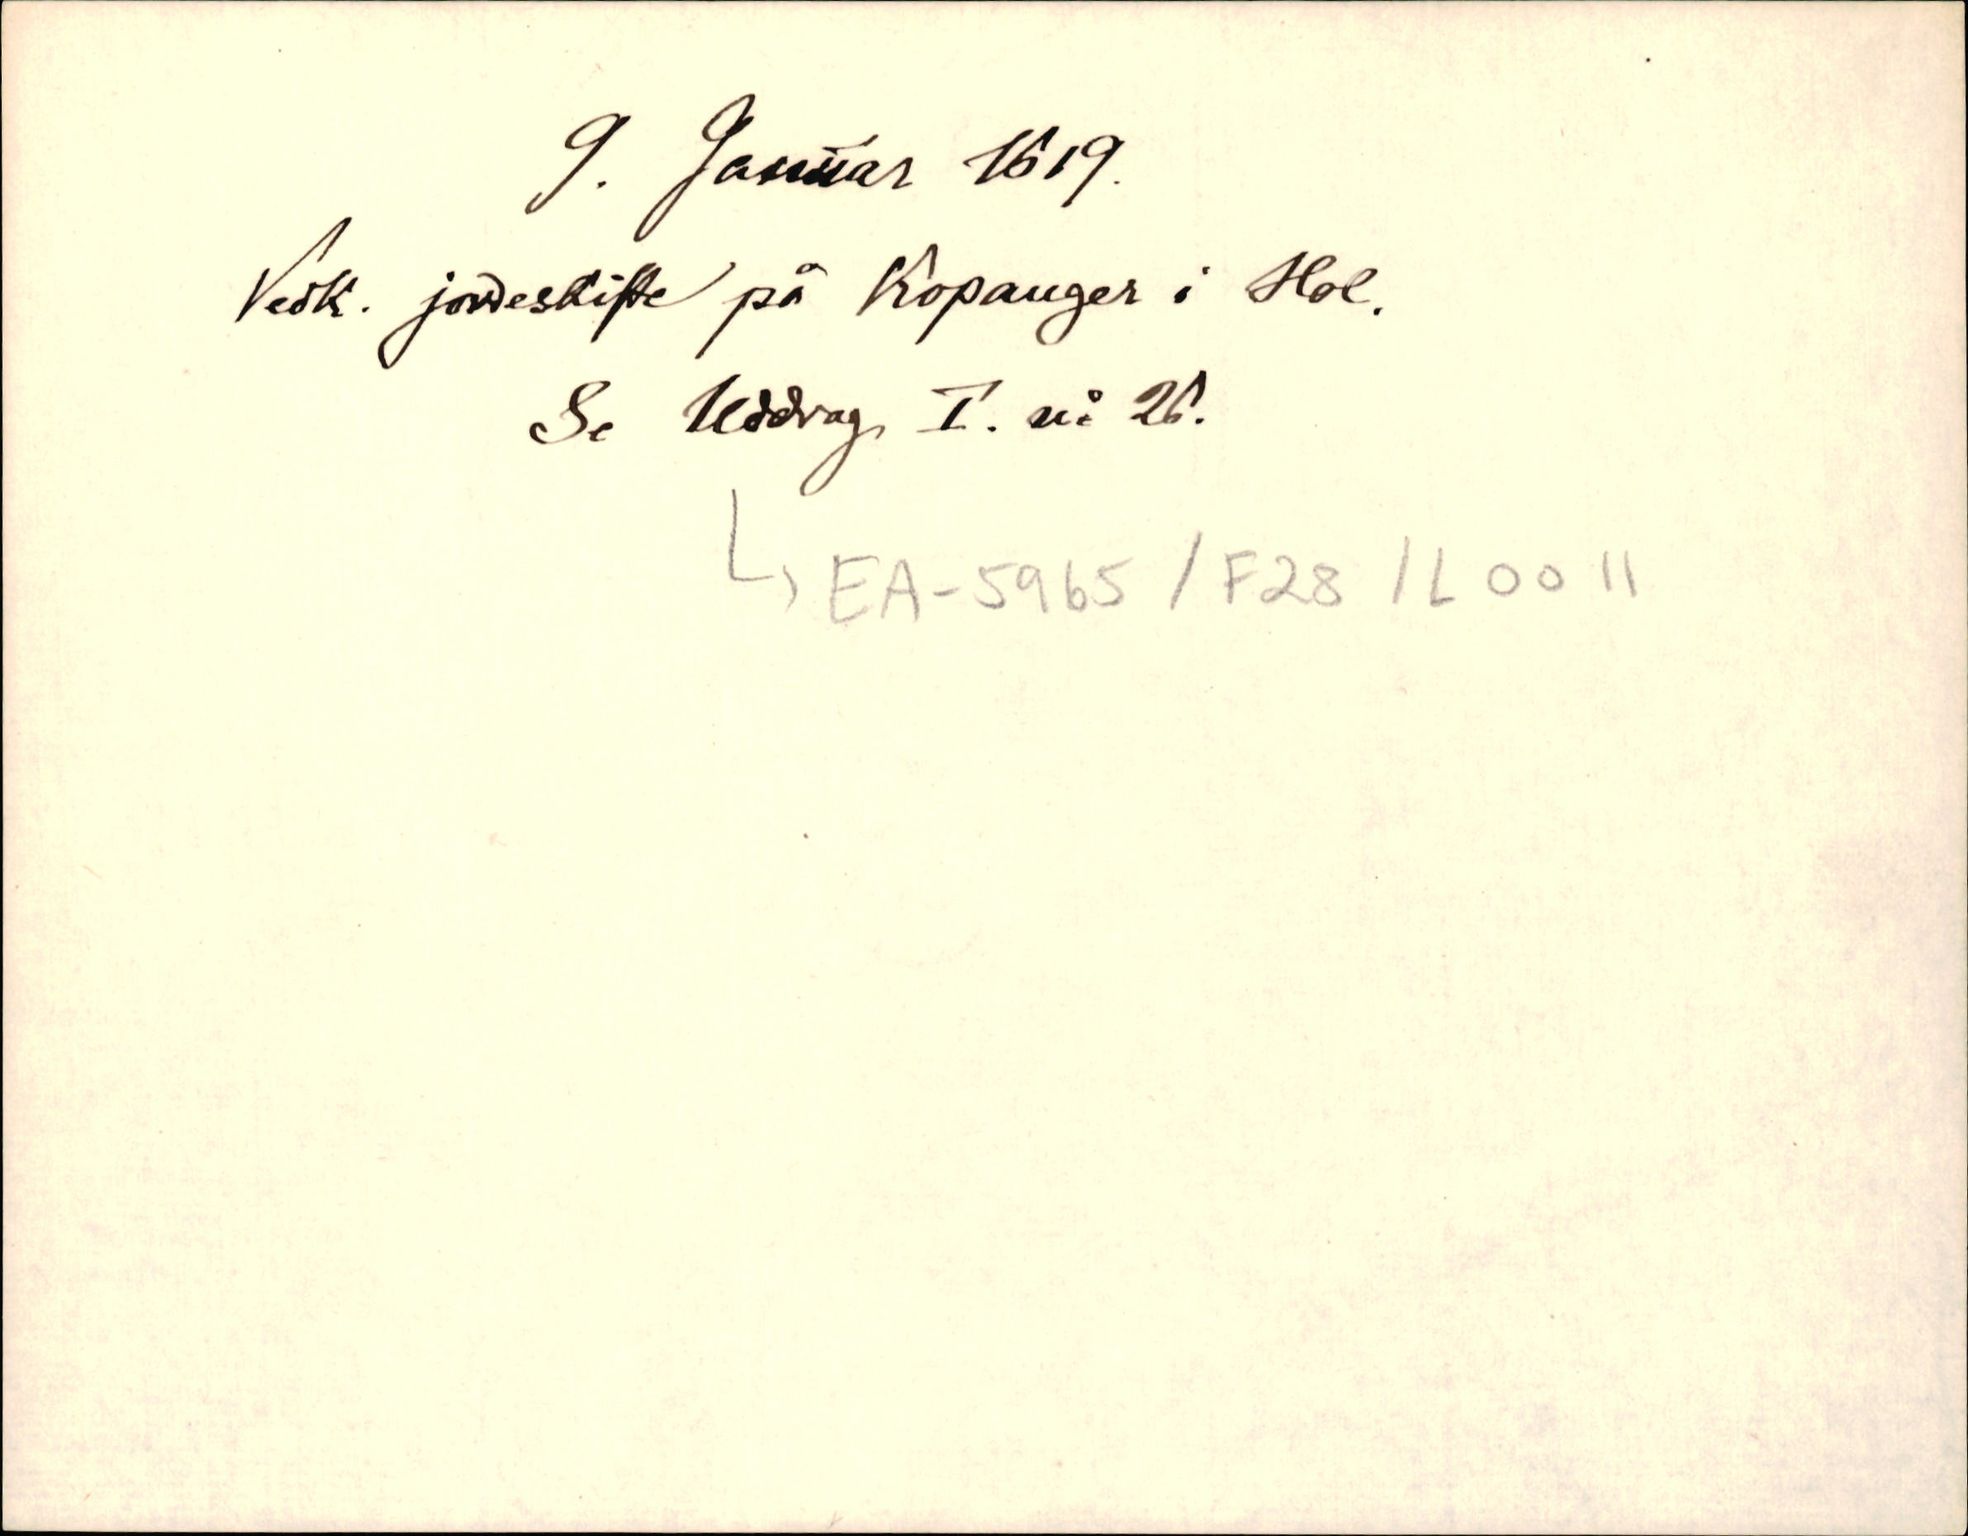 9. Januar 1619.
Vedk. jordeskifte på Kopanger i Hol.
Se Uddrag I. nº 26.
EA-5965 / F28 / L 00 11